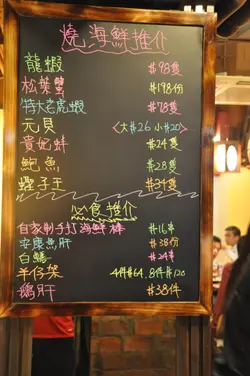 燒海鮮推介
龍蝦 $98隻
松葉蟹 $198份
特大老虎蝦 $78隻
元貝 <大$26 小$20>
貴妃蚌 $24隻
鮑魚 $28隻
蟶子王 $34隻
必食推介
自家制手打海鮮棒 $16串
安康魚肝 $38份
白鱔 $24串
羊仔架 4件$64, 8件$120
鵝肝 $38件